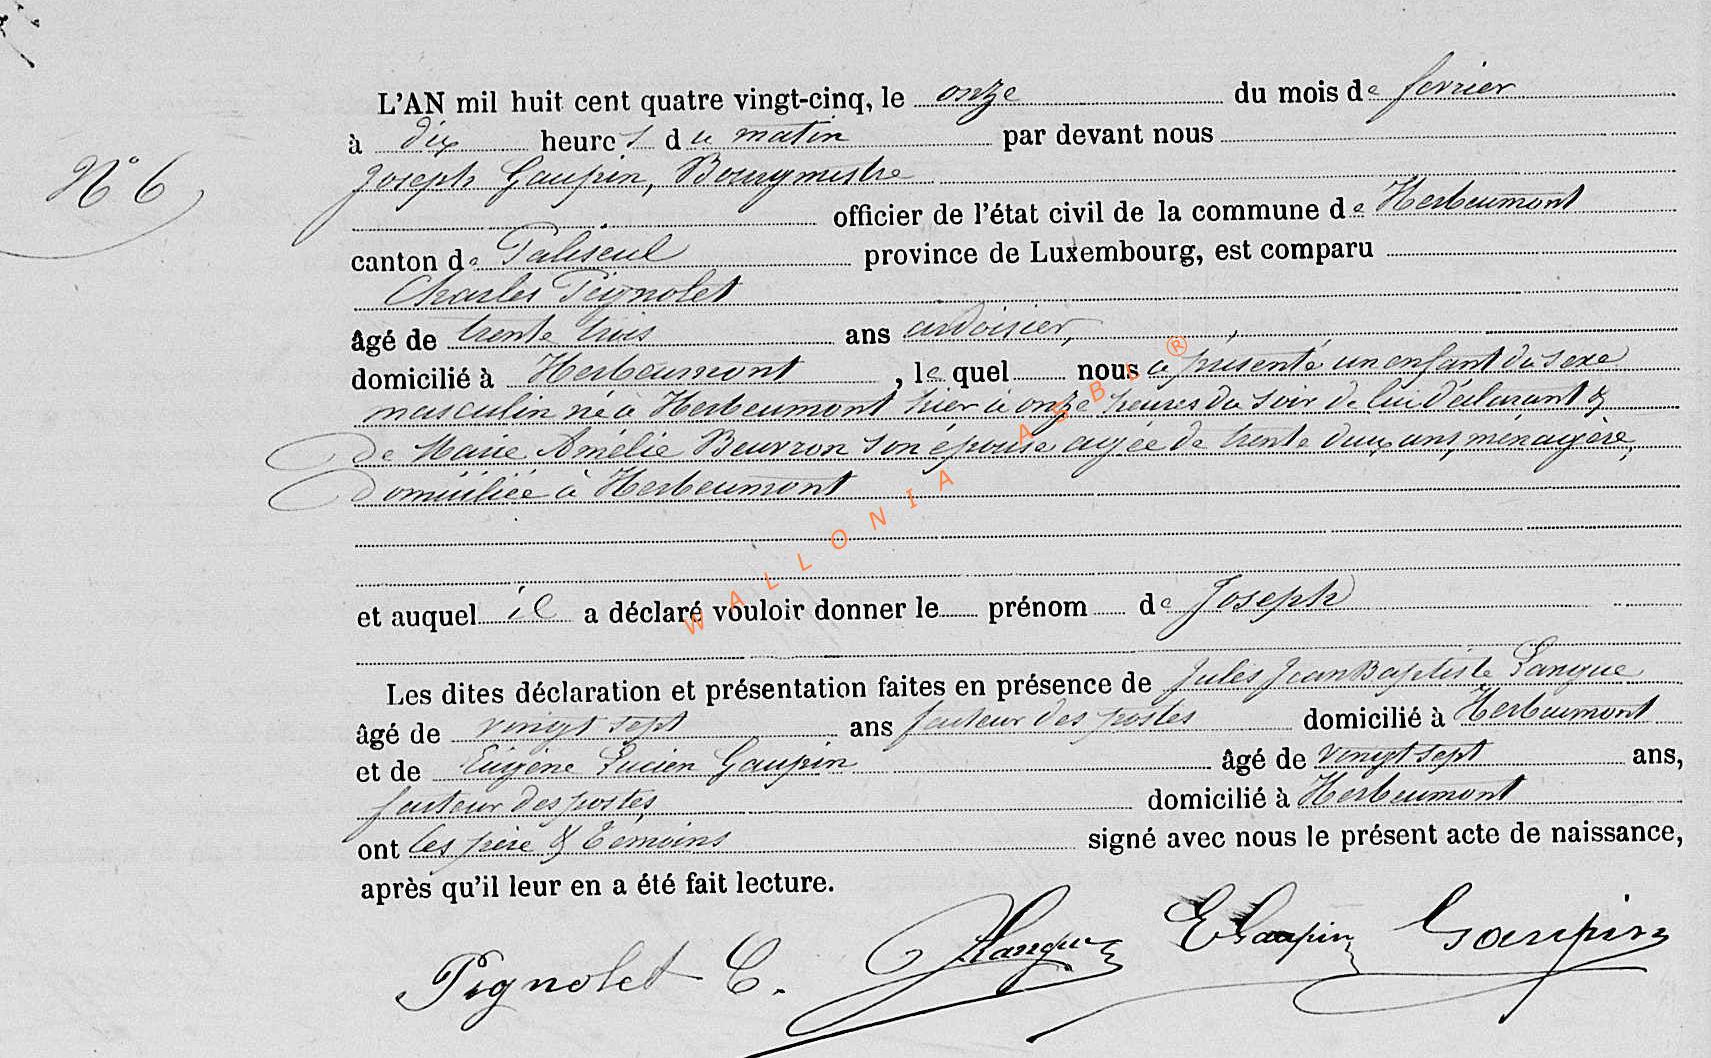 L'AN mil huit cent quatre vingt-cinq, le onze du mois de fevrier
N° 6
à dix heures du matin par devant nous
Joseph Gaupin, Bourgmestre
officier de l'état civil de la commune de Herbeumont
canton de Paliseul province de Luxembourg, est comparu
Charles Pignolet
âgé de trente trois ans ardoisier,
domicilié à Herbeumont, le quel nous a présenté un enfant du sexe
masculin né à Herbeumont hier à onze heures du soir de lui déclarant &
de Marie Amélie Beuvron son épouse agée de trente deux ans, ménagère,
domiciliée à Herbeumont
WALLONIA ASBL ®
et auquel il a déclaré vouloir donner le prénom de Joseph
Les dites déclaration et présentation faites en présence de Jules Jean Baptiste Langue
âgé de vingt sept ans facteur des postes domicilié à Herbeumont
et de Eugène Lucien Gaupin âgé de vingt sept ans,
facteur des postes, domicilié à Herbeumont
ont les père & témoins signé avec nous le présent acte de naissance,
après qu'il leur en a été fait lecture.
Pignolet C. JLangue EGaupin Gaupin